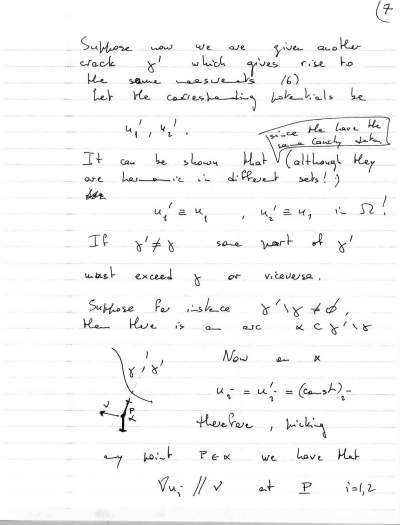 (7
Suppose now we are given another
crack γ' which gives rise to
the same measurements (6)
Let the corresponding potentials be
u₁', u₂'.
since the have the
same Cauchy data,
It can be shown that (although they
are harmonic in different sets!)
u₁' ≡ u₁ , u₂' ≡ u₁ in Ω!
If γ' ≠ γ some part of γ'
must exceed γ or viceversa.
Suppose for instance γ'\γ ≠ ∅,
then there is an arc α ⊂ γ'\γ
γ γ'
Now on α
ν P α
uᵢ = uᵢ' = (const)ᵢ
therefore, picking
any point P ∈ α we have that
∇uᵢ // ν at P i=1,2